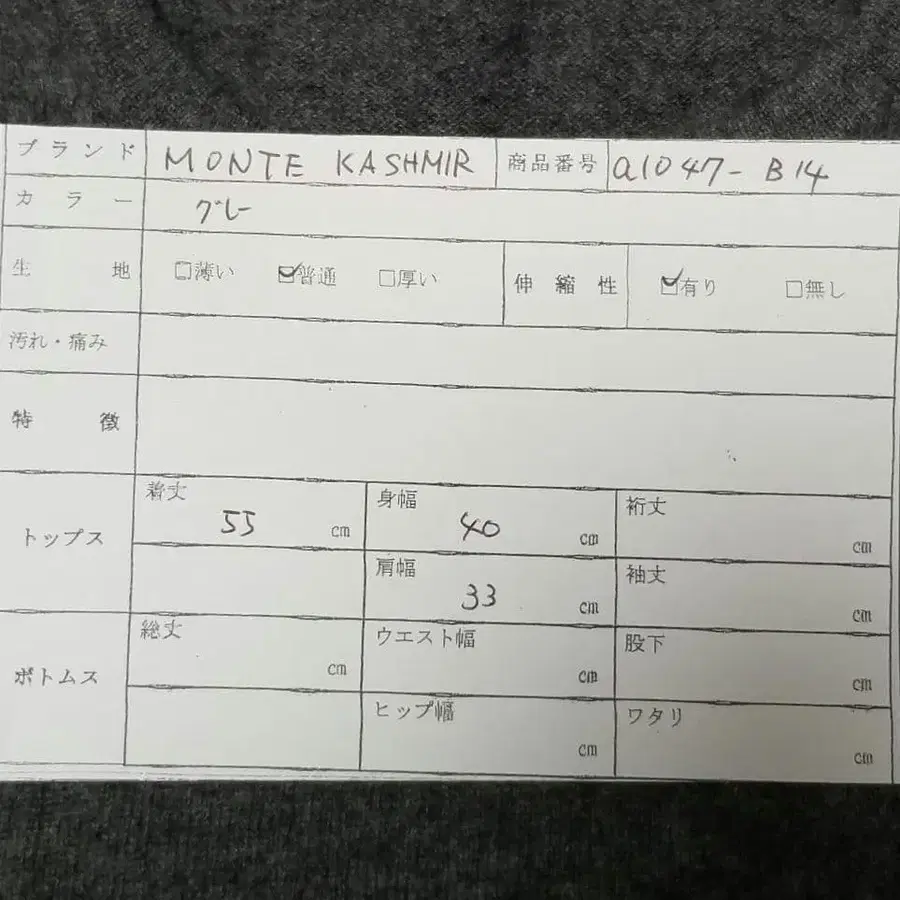 ブランド MONTE KASHMIR 商品番号 a1047-B14
カラー グレー
生地 □薄い ☑普通 □厚い 伸縮性 ☑有り □無し
汚れ・痛み
特徴
トップス 着丈 55 cm 身幅 40 cm 裄丈 cm
肩幅 33 cm 袖丈 cm
ボトムス 総丈 cm ウエスト幅 cm 股下 cm
ヒップ幅 cm ワタリ cm